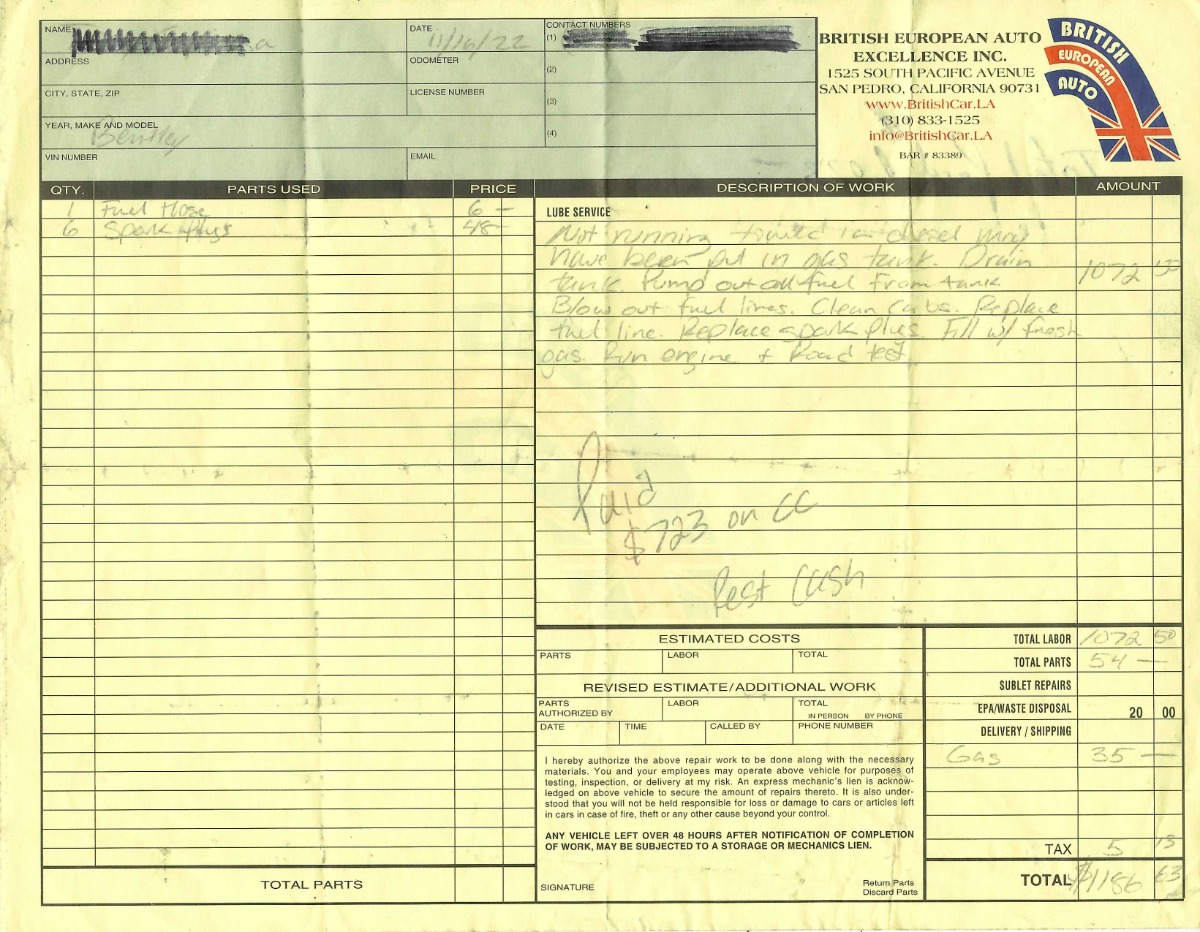 NAME
DATE 11/16/22
CONTACT NUMBERS
(1)
ADDRESS
ODOMETER
(2)
CITY, STATE, ZIP
LICENSE NUMBER
(3)
YEAR, MAKE AND MODEL
Bentley
(4)
VIN NUMBER
EMAIL
BRITISH EUROPEAN AUTO
EXCELLENCE INC.
1525 SOUTH PACIFIC AVENUE
SAN PEDRO, CALIFORNIA 90731
www.BritishCar.LA
(310) 833-1525
info@BritishCar.LA
BAR # 83389
BRITISH
EUROPEAN
AUTO
QTY. PARTS USED PRICE
1 Fuel Hose 6 —
6 Spark plugs 48 —
TOTAL PARTS
DESCRIPTION OF WORK AMOUNT
LUBE SERVICE
Not running diesel may
have been put in gas tank. Drain
tank Pump out all fuel from tank 1072
Blow out fuel lines. Clean carbs. Replace
fuel line. Replace spark plugs. Fill w/ fresh
gas. Run engine + Road test.
Paid
$723 on CC
Rest Cash
ESTIMATED COSTS
PARTS LABOR TOTAL
REVISED ESTIMATE/ADDITIONAL WORK
PARTS LABOR TOTAL
AUTHORIZED BY IN PERSON BY PHONE
DATE TIME CALLED BY PHONE NUMBER
I hereby authorize the above repair work to be done along with the necessary
materials. You and your employees may operate above vehicle for purposes of
testing, inspection, or delivery at my risk. An express mechanic's lien is acknow-
ledged on above vehicle to secure the amount of repairs thereto. It is also under-
stood that you will not be held responsible for loss or damage to cars or articles left
in cars in case of fire, theft or any other cause beyond your control.
ANY VEHICLE LEFT OVER 48 HOURS AFTER NOTIFICATION OF COMPLETION
OF WORK, MAY BE SUBJECTED TO A STORAGE OR MECHANICS LIEN.
SIGNATURE
Return Parts
Discard Parts
TOTAL LABOR 1072 50
TOTAL PARTS 54 —
SUBLET REPAIRS
EPA/WASTE DISPOSAL 20 00
DELIVERY / SHIPPING
Gas 35 —
TAX 5 13
TOTAL $1186 63